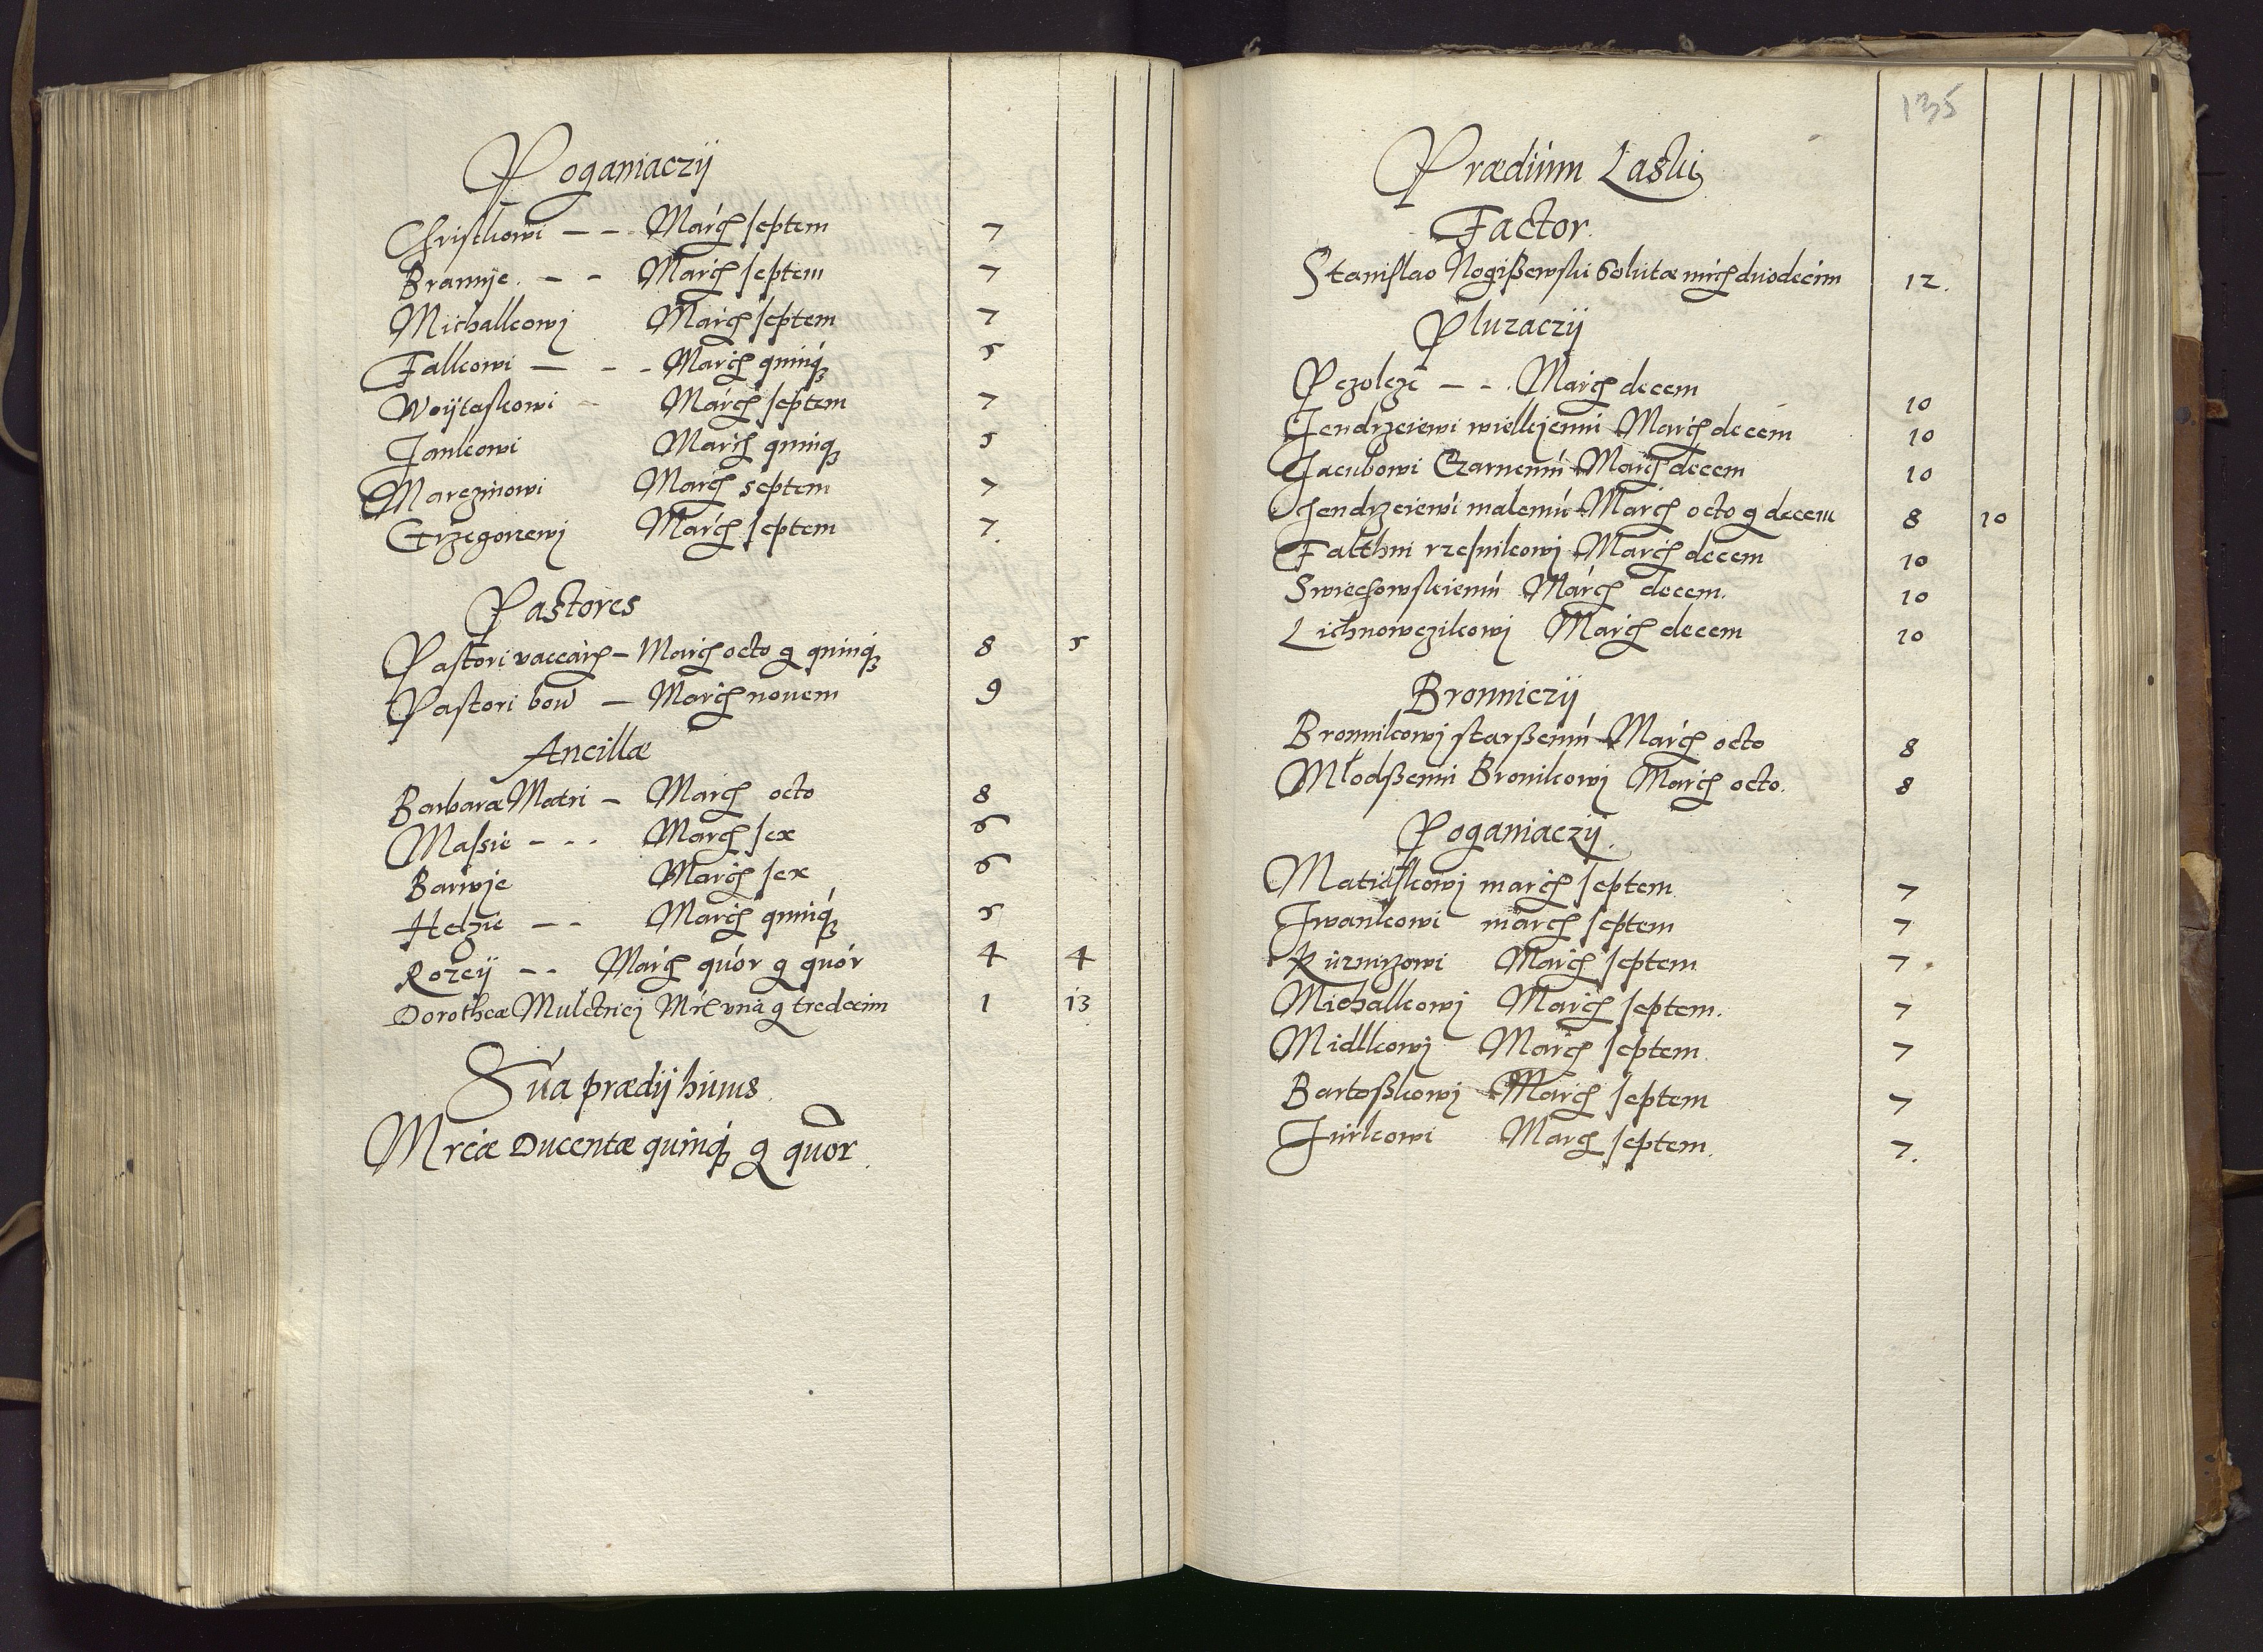 Poganiaczÿ
Christkowi – – Marcҙ septem 7
Bramÿe. – – Marcҙ septem 7
Michalkowj Marcҙ septem 7
Falkowi – – – Marcҙ quinqꝫ 5
Woÿtaskowi – Marcҙ septem 7
Jankowi Marcҙ quinqꝫ 5
Marczinowi Marcҙ septem 7
Grzegorzewj Marcҙ septem 7.
Pastores
Pastori vaccarҙ – Marcҙ octo g quinqꝫ 8 5
Pastori bou – Marcҙ nouem 9
Ancillæ
Barbaræ Matri – Marcҙ octo 8
Massie – – – Marcҙ sex 6
Barwje Marcҙ sex 6
Helzie – – Marcҙ quinqꝫ 5
Rozeÿ – – Marcҙ quor g quor 4 4
Dorotheæ Mulctricj Mrc vna g tredecim 1 13
Sua prædij huius
Mrcæ Ducentæ quinqꝫ g quor.
135
Prædium Laski
Factor.
Stanislao Nogißewski solutæ mrcҙ duodecim 12.
Pluzaczÿ
Pczolcze – – . Marcҙ decem 10
Jendrzeiewi wielkjemu Marcҙ decem 10
Jacubowi Czarnemu Marcҙ decem 10
Jendrzeiewi malemu Marcҙ octo g decem 8 10
Falthni rzesnikowj Marcҙ decem 10
Swiechowskiemu Marcҙ decem. 10
Lichnowczikowj Marcҙ decem 10
Bronniczÿ
Bronnikowj starßemu Marcҙ octo 8
Młodßemu Bronikowj Marcҙ octo. 8
Poganiaczÿ.
Matiaskowj marcҙ septem 7
Iwankowi marcҙ septem 7
Kuznirzowi Marcҙ septem 7
Michalkowj Marcҙ septem. 7
Midlkowj Marcҙ septem. 7
Bartoßkowj Marcҙ septem 7
Jurkowi Marcҙ septem. 7.